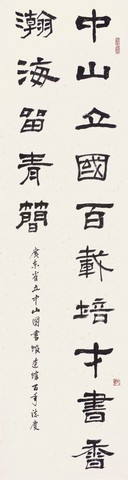 中山立國百載培才書香
瀚海留青簡
廣東省立中山圖書館建館百年誌慶